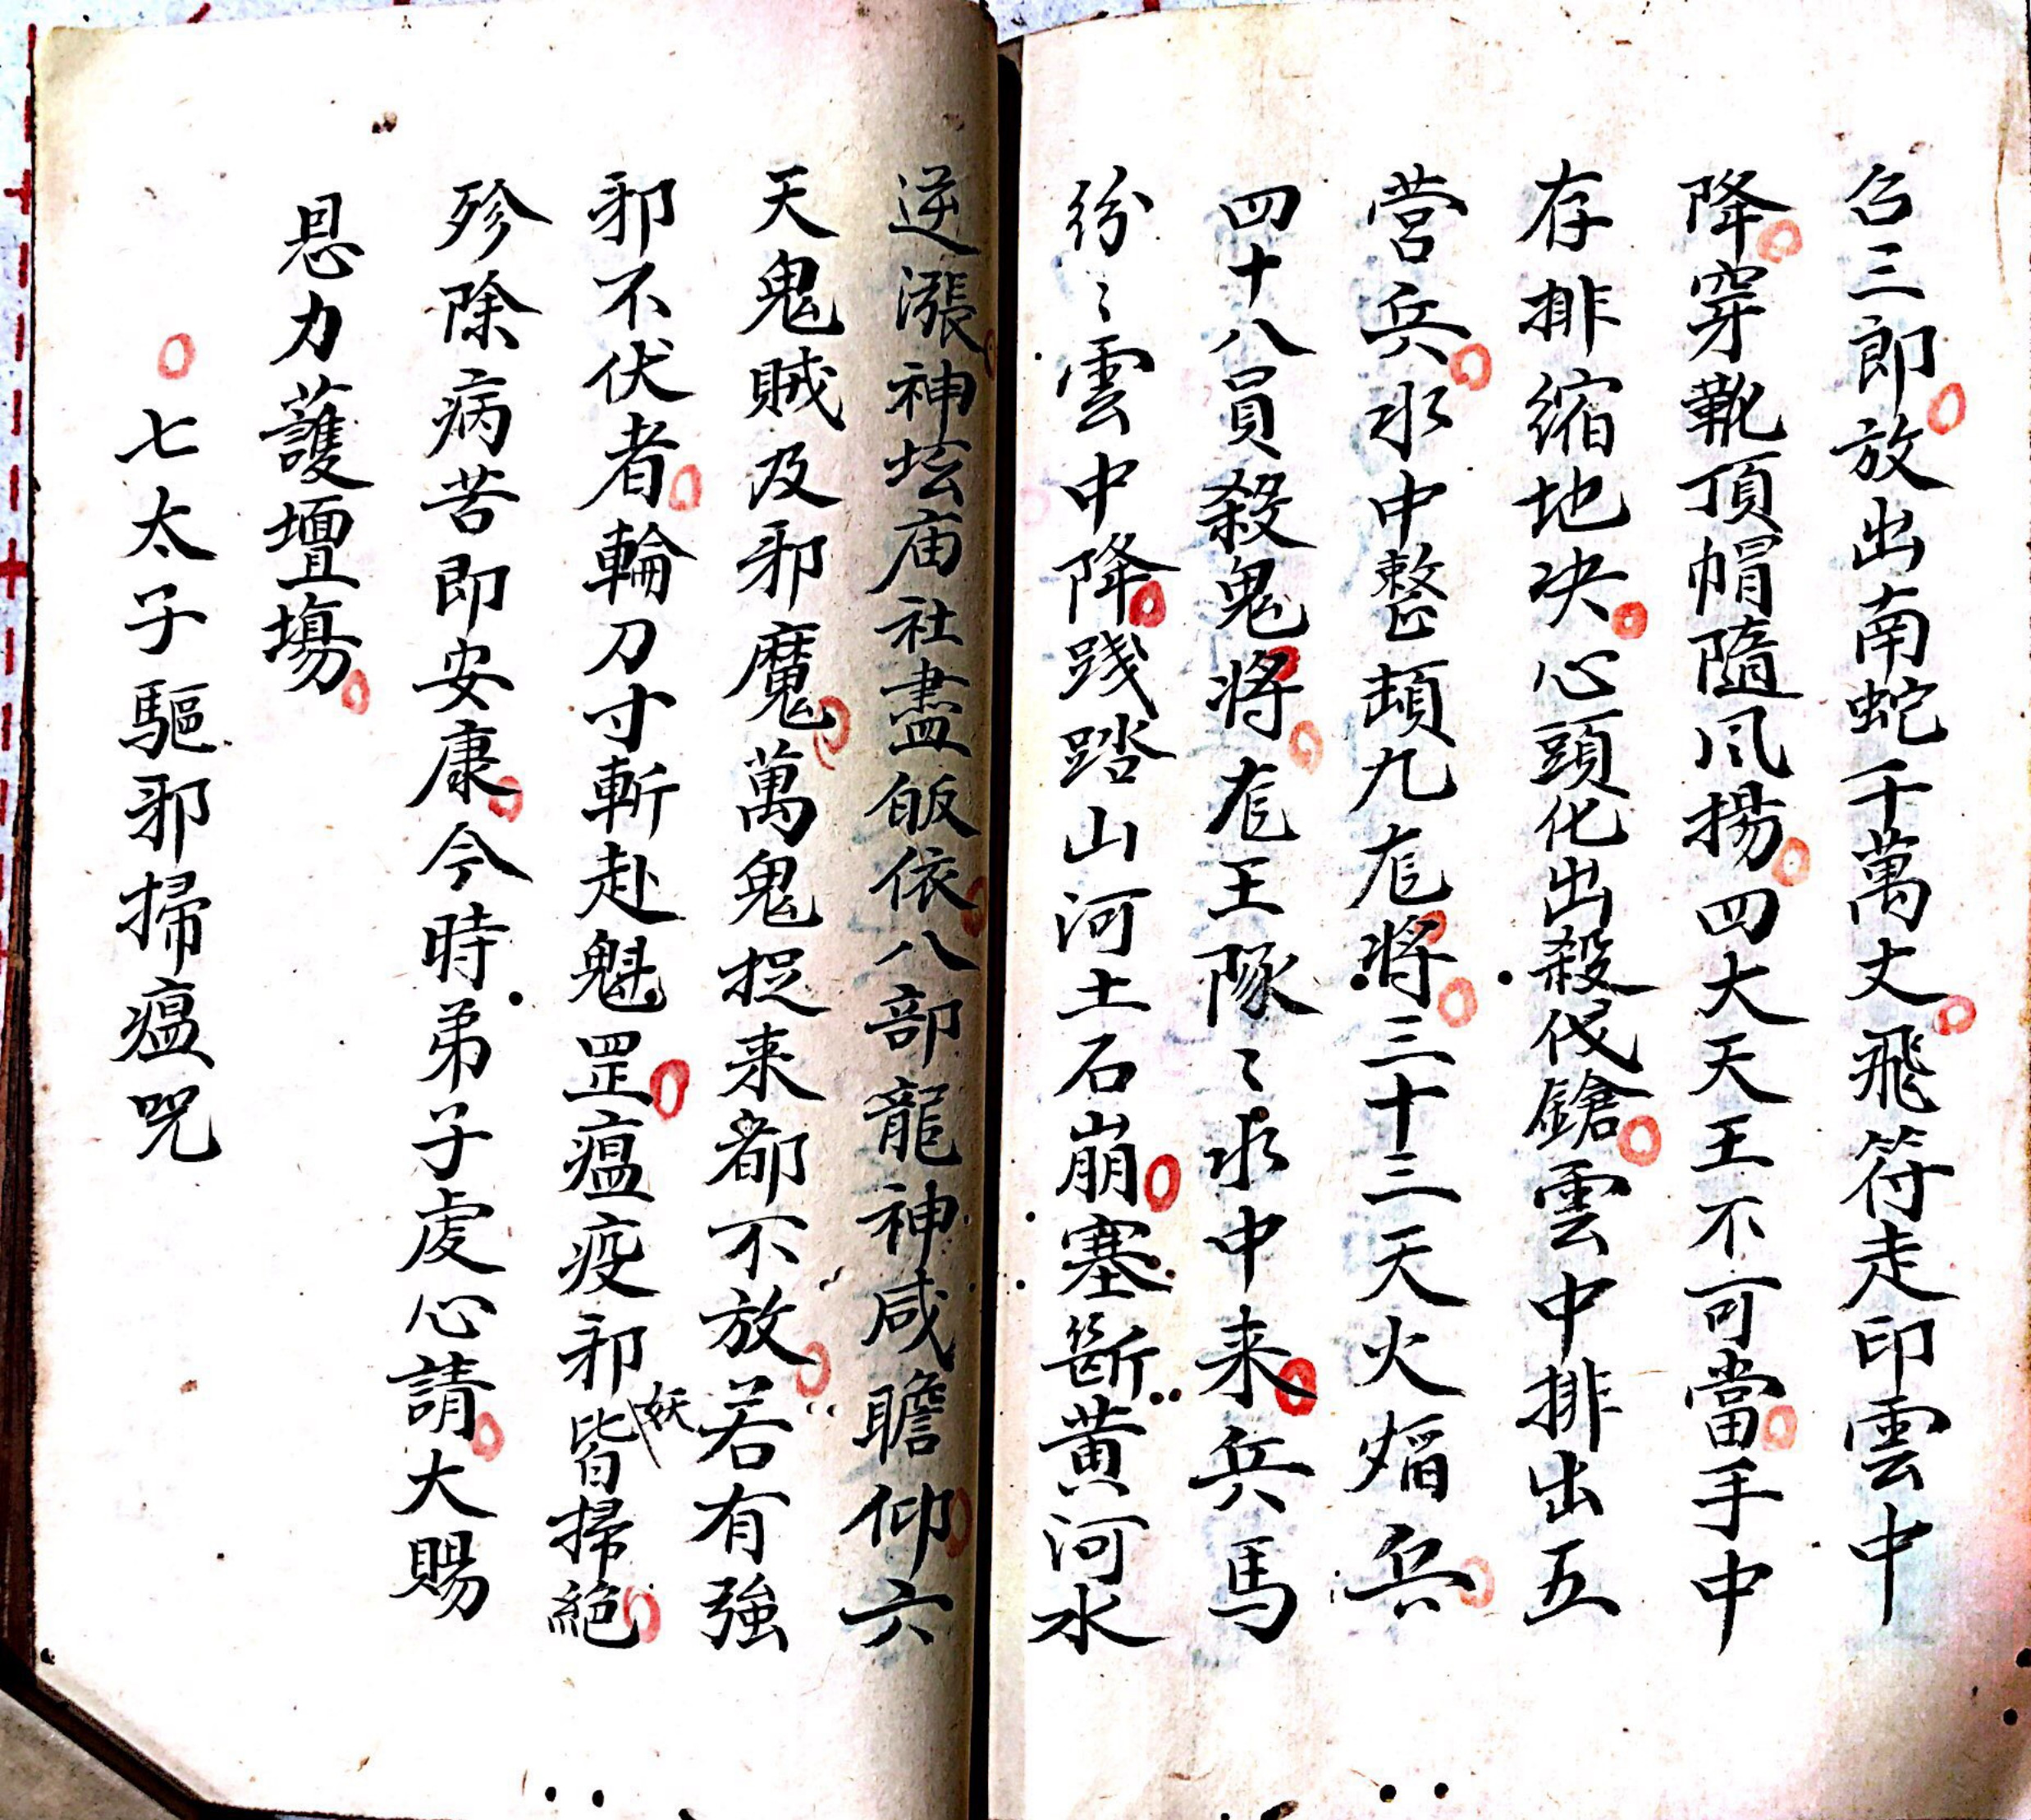 召三郎放出南蛇千萬丈飛符走印雲中
降穿靴頂帽隨风揚四大天王不可當手中
存排縮地决心頭化出殺伐鎗雲中排出五
营兵水中整頓九㡯將三十二天火熖兵
四十八員殺鬼將㡯王隊〻水中来兵馬
紛〻雲中降踐踏山河土石崩塞斷黄河水
逆漲神坛庙社盡皈依八部龍神咸瞻仰六
天鬼賊及邪魔萬鬼捉来都不放若有強
邪不伏者輪刀寸斬赴魁罡瘟疫邪妖皆掃絕
殄除病苦即安康今時弟子虔心請大賜
恩力護壇場
七太子驅邪掃瘟咒